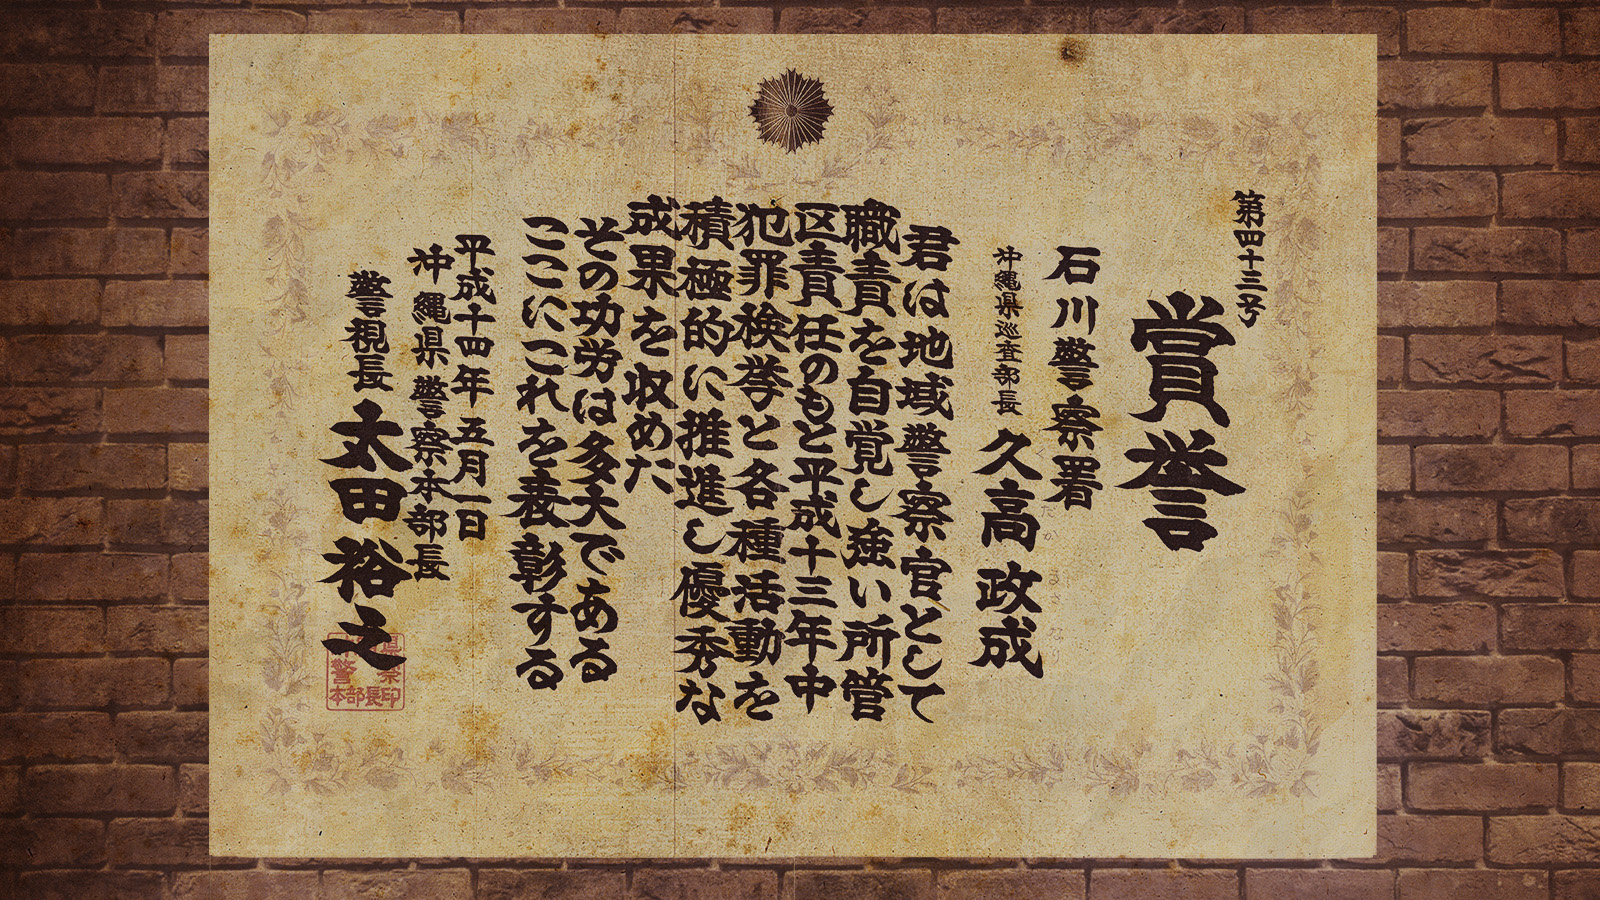 第四十三号
賞誉
石川警察署
沖縄県巡査部長
久高政成
君は地域警察官として
職責を自覚し強い所管
区責任のもと平成十三年中
犯罪検挙と各種活動を
積極的に推進し優秀な
成果を収めた
その功労は多大である
ここにこれを表彰する
平成十四年五月一日
沖縄県警察本部長
警視長 太田裕之
本部長印